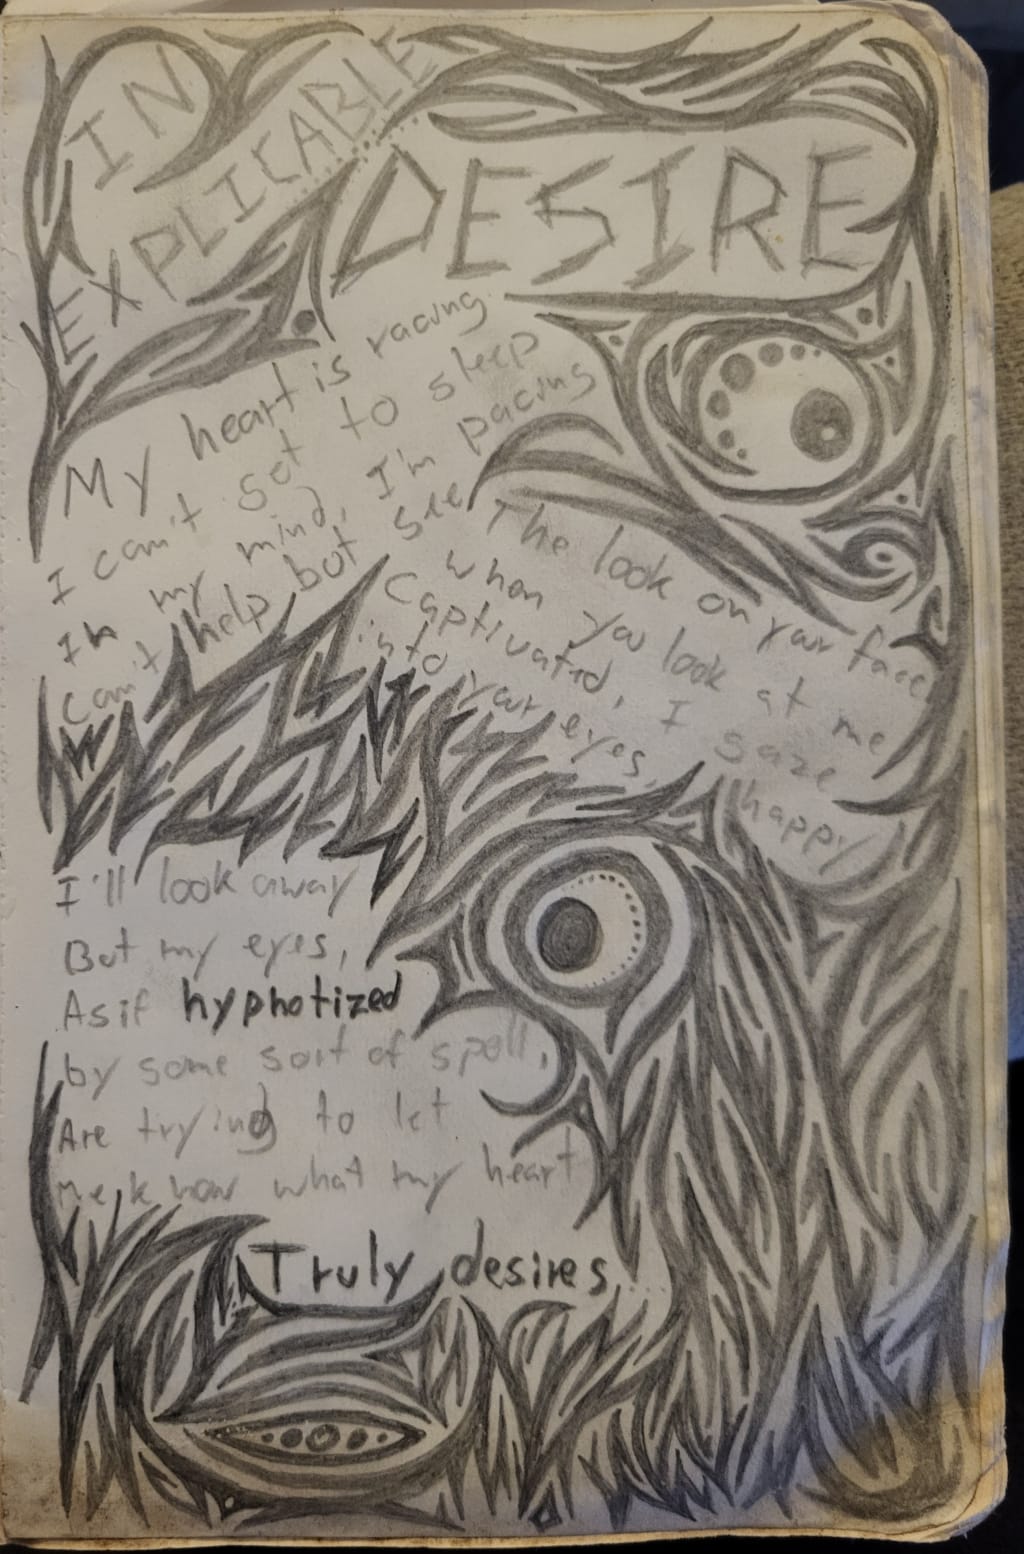 IN
EXPLICABLE
DESIRE
My heart is racing
I can't get to sleep
In my mind, I'm pacing
Can't help but see
The look on your face
when you look at me
Captivated, I gaze
into your eyes, happy
I'll look away
But my eyes,
As if hyphotized
by some sort of spell,
Are trying to let
Me know what my heart
Truly desires...